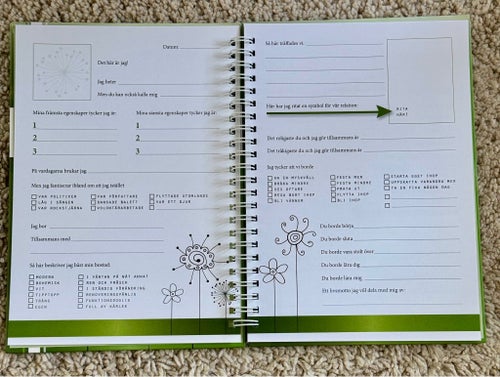 Datum:
Det här är jag!
Jag heter
Men du kan också kalla mig
Mina främsta egenskaper tycker jag är:
1
2
3
Mina sämsta egenskaper tycker jag är:
1
2
3
På vardagarna brukar jag
Men jag fantiserar ibland om att jag istället
VAR POLITIKER
LÅG I SÄNGEN
VAR ROCKSTJÄRNA
VAR FÖRFATTARE
DANSADE BALETT
VOLONTÄRARBETADE
FLYTTADE UTOMLANDS
VAR ETT DJUR
Jag bor
Tillsammans med
Så här beskriver jag bäst min bostad:
MODERN
BOHEMISK
VIT
TIPPTOPP
TRÅNG
EGEN
I VÄNTAN PÅ NÅT ANNAT
REN OCH FRÄSCH
I STÄNDIG FÖRÄNDRING
RENOVERINGSFÄRDIG
FUNKTIONSDUGLIG
FULL AV KÄRLEK
Så här träffades vi
Här har jag ritat en symbol för vår relation:
RITA
HÄR!
Det roligaste du och jag gör tillsammans är
Det tråkigaste du och jag gör tillsammans är
Jag tycker att vi borde
HA EN MYSKVÄLL
BRÅKA MINDRE
SES OFTARE
RESA BORT IHOP
BLI VÄNNER
FESTA MER
FESTA MINDRE
PRATA UT
FLYTTA IHOP
BLI
STARTA EGET IHOP
UPPSKATTA VARANDRA MER
TA EN FIKA NÅGON DAG
Du borde börja
Du borde sluta
Du borde vara stolt över
Du borde lära dig
Du borde lära mig
Ett livsmotto jag vill dela med mig av: